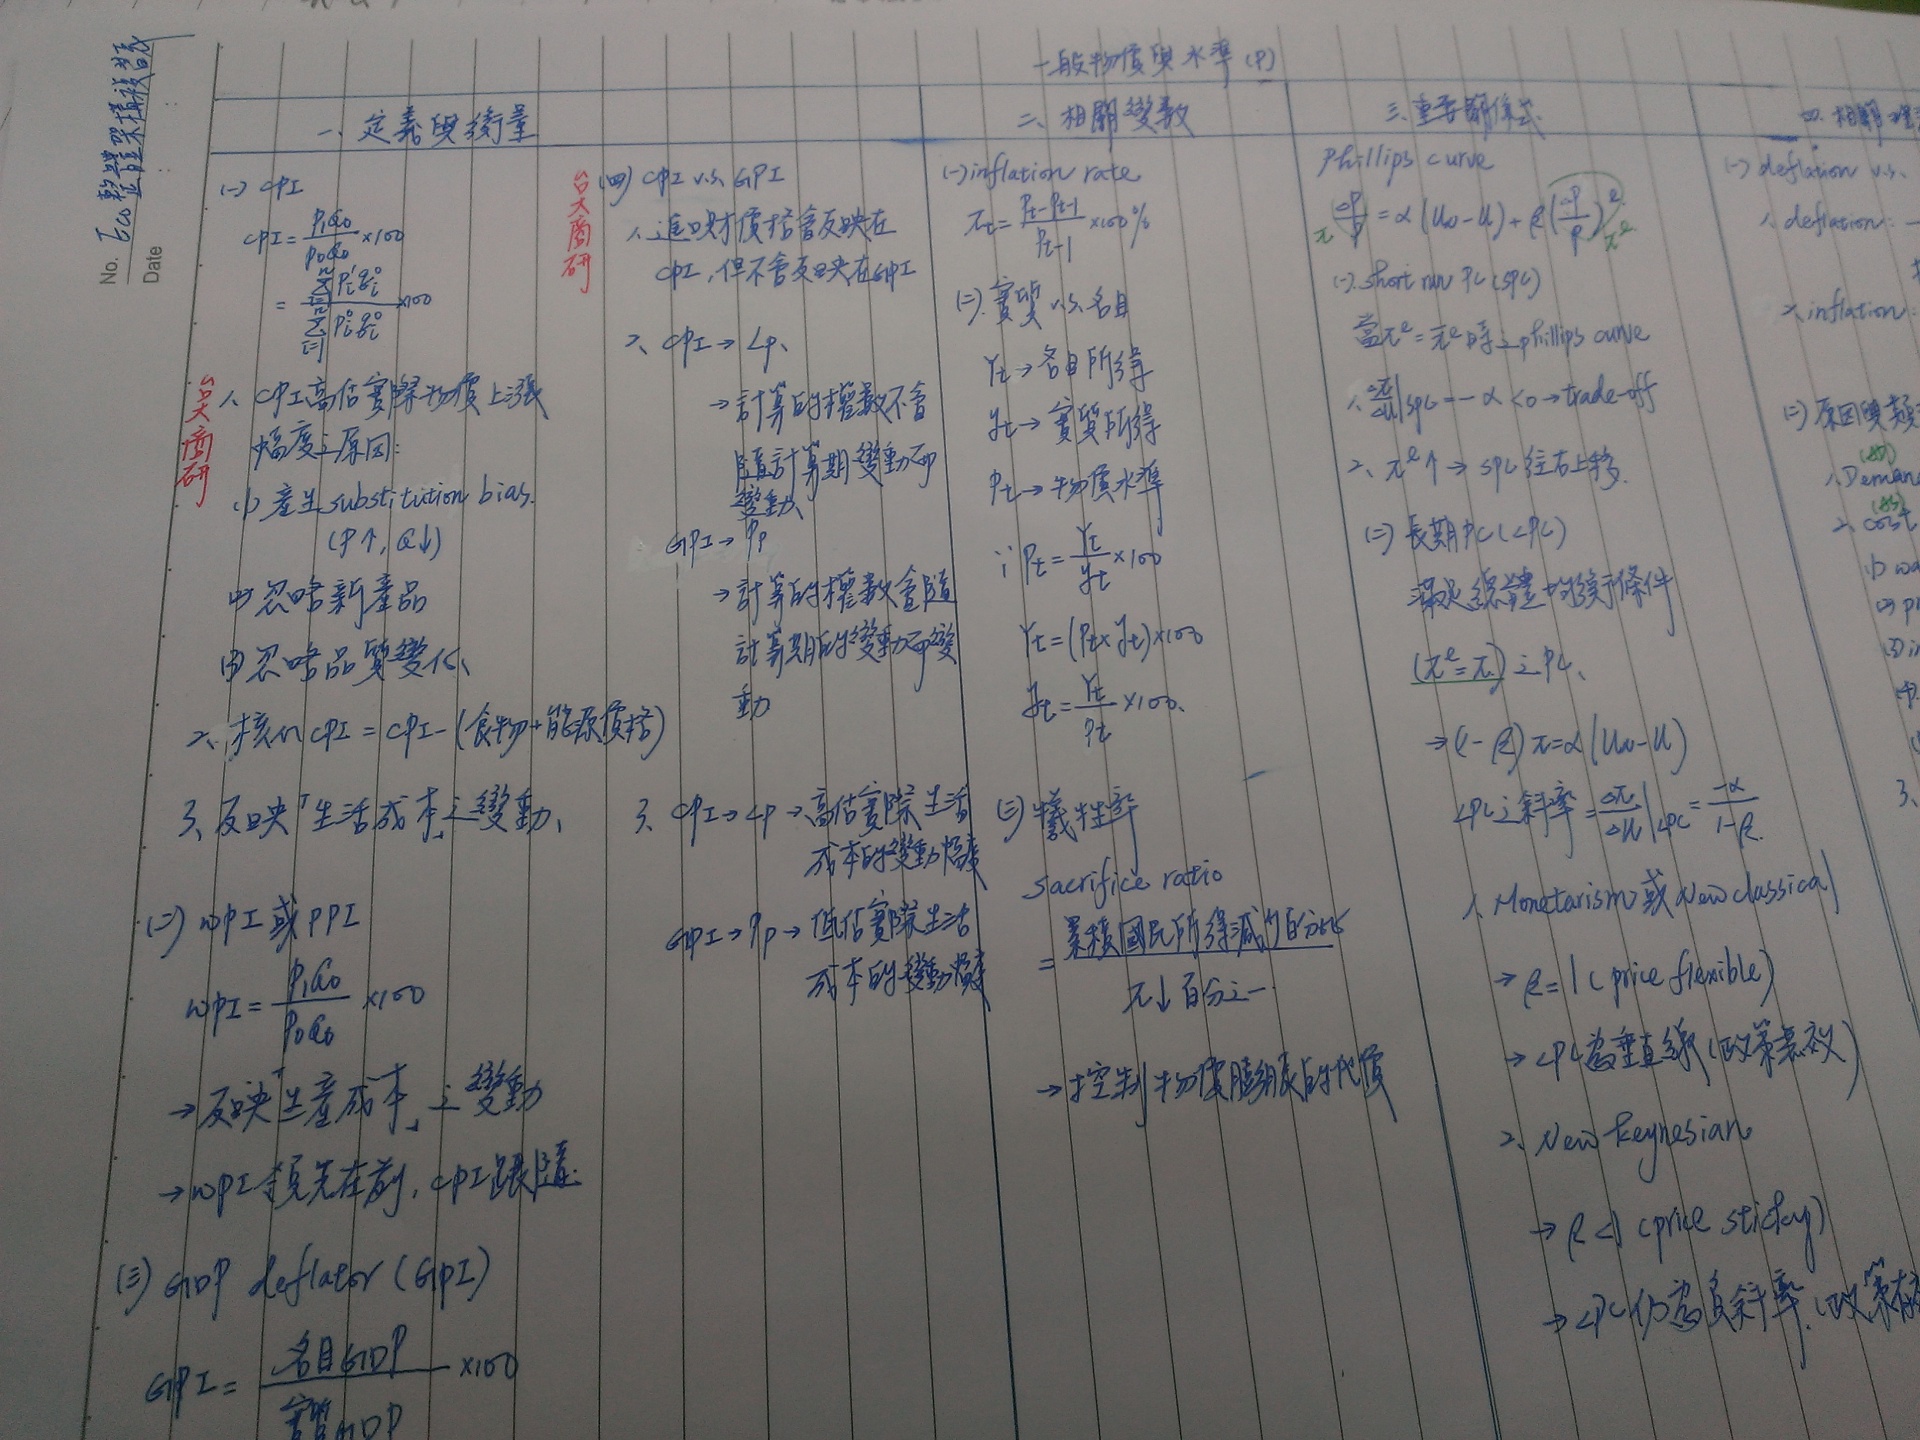 No. Eco 整體架構複習
Date
一般物價與水準(P)
一、定義與衡量
(一) CPI
CPI = P₁Q₀/P₀Q₀ ×100
= Σⁿᵢ₌₁ Pᵢ'qᵢ⁰ / Σⁿᵢ₌₁ Pᵢ⁰qᵢ⁰ ×100
台大商研
1、CPI高估實際物價上漲
幅度之原因:
(1) 產生substitution bias.
(P↑, Q↓)
(2) 忽略新產品
(3) 忽略品質變化、
2、核心CPI = CPI-(食物+能源價格)
3、反映「生活成本」之變動、
(二) WPI或PPI
WPI = P₁Q₀/P₀Q₀ ×100
→反映「生產成本」之變動
→WPI領先在前, CPI跟隨.
(三) GDP deflator (GPI)
GPI = 名目GDP/實質GDP ×100
台大商研
(四) CPI v.s. GPI
1、進口財價格會反映在
CPI, 但不會反映在GPI
2、CPI→Lp、
→計算的權數不會
隨計算期變動而
變動、
GPI→Pp
→計算的權數會隨
計算期的變動而變
動
3、CPI→Lp→高估實際生活
成本的變動幅度
GPI→Pp→低估實際生活
成本的變動幅度
二、相關變數
(一) inflation rate
πt = Pt-Pt-1/Pt-1 ×100%
(二) 實質v.s.名目
Yt→名目所得
yt→實質所得
Pt→物價水準
∵Pt = Yt/yt ×100
Yt = (Pt×yt)×100
yt = Yt/Pt ×100、
(三) 犧牲率
sacrifice ratio
= 累積國民所得減少百分比/π↓百分之一
→控制物價膨脹的代價
三、重要關係式
Phillips curve
π ΔP/P = α(Un-U)+β(ΔP/P)ᵉ πᵉ
(一) short run PC (SPC)
當πᵉ=πᵉ時之phillips curve
1、Δπ/ΔU|SPC = -α<0→trade-off
2、πᵉ↑→SPC往右上移.
(二) 長期PC (LPC)
滿足總體均衡條件
(πᵉ=π)之PC、
→(1-β)π=α(Un-U)
LPC之斜率=Δπ/ΔU|LPC = -α/1-β
1、Monetarism或New classical
→β=1 (price flexible)
→LPC為垂直線(政策無效)
2、New Keynesian
→β<1 (price sticky)
→LPC仍為負斜率.(政策有
四、相關
(一) deflation v.s.
1、deflation:
2、inflation:
(二) 原因與類
1、Deman
2、cost
(1) wa
(2) p
(3) i
3、